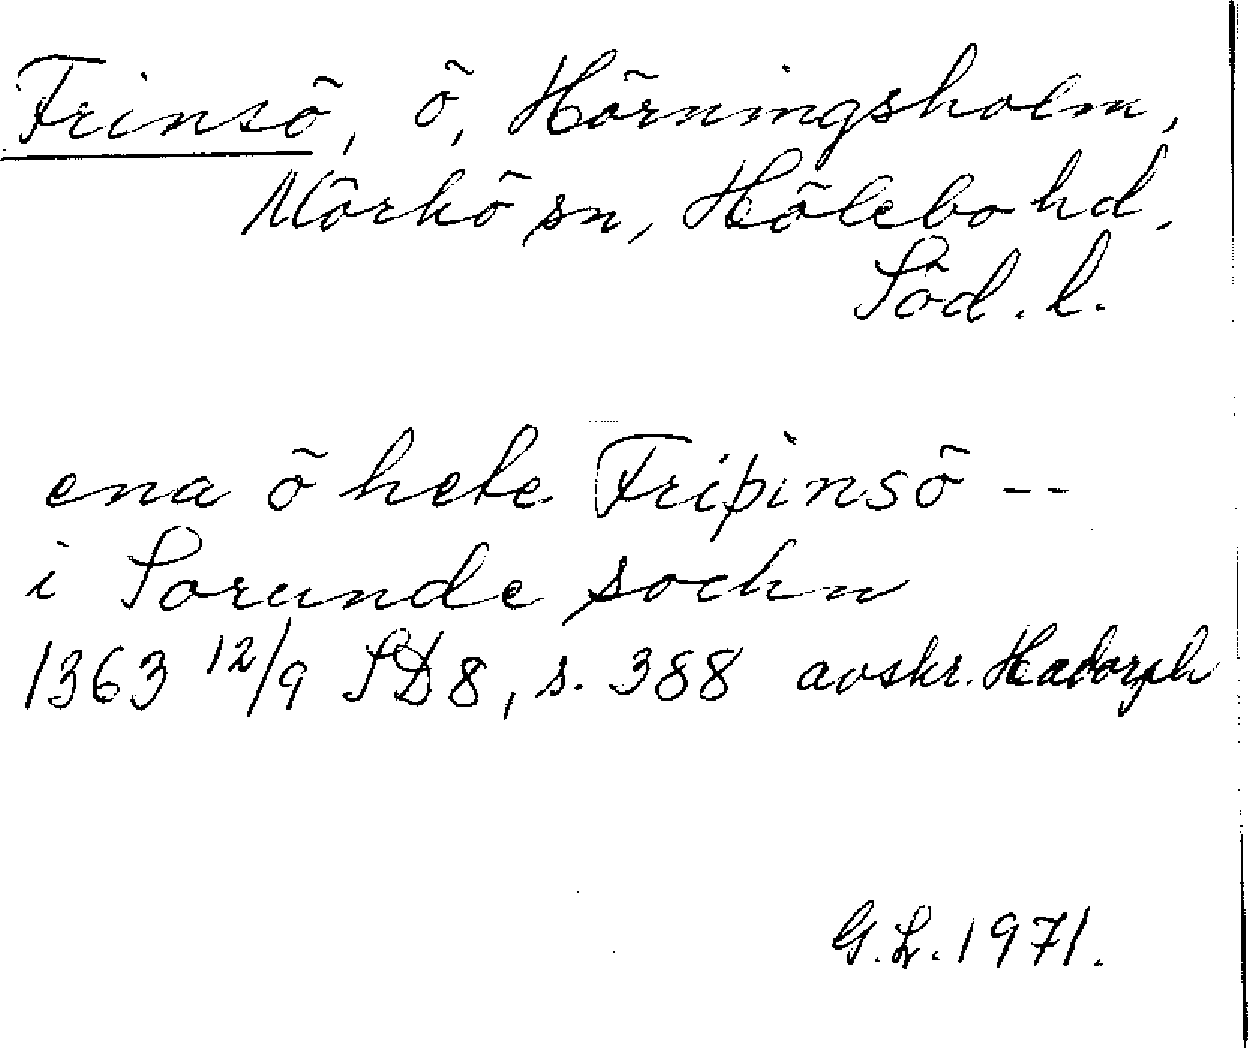 Frinsö, ö, Hörningsholm,
Mörkö sn, Hölebo hd,
Söd. l.
ena ö hete Friþinsö --
i Sorunde sochn
1363 12/9 SD8, s. 388 avskr. Hadorph
G.L. 1971.